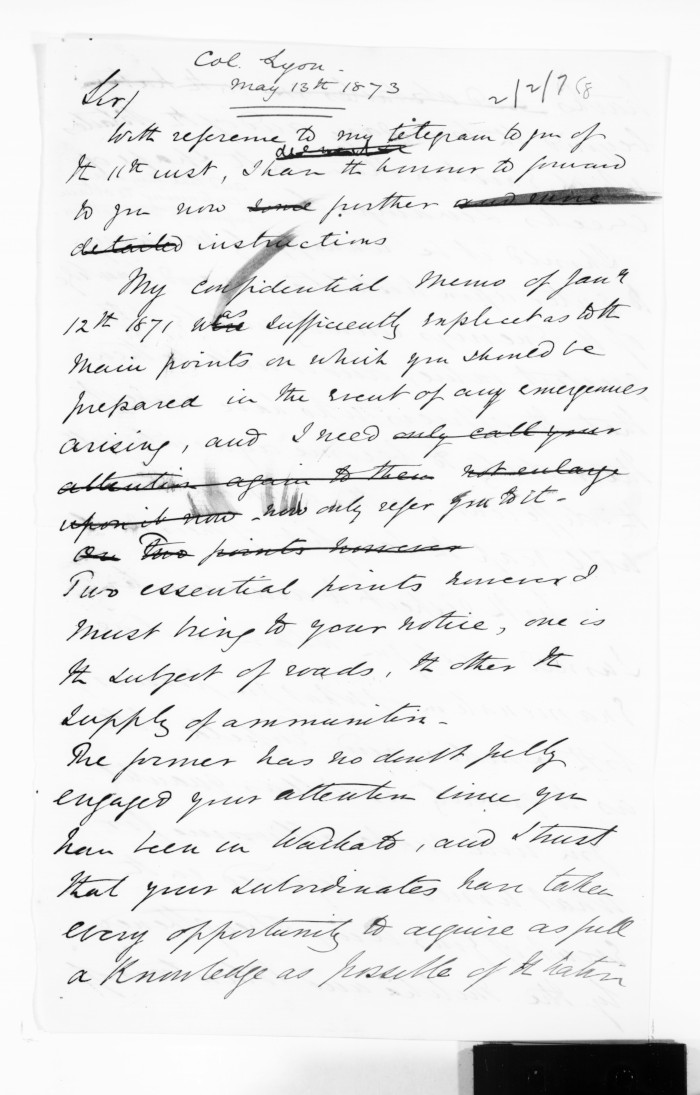 Col. Lyon.
May 13th 1873
Sir/
With reference to my telegram to you of
th 11th inst, I have th honour to forward
to you now some further and some
detailed instructions
My confidential Memo of Jany
12th 1871 was sufficiently explicit as to th
main points on which you should be
prepared in the event of any emergencies
arising, and I need only call your
attention again to them not enlarge
upon it now - now only refer you to it -
On Two points however
Two essential points however I
must bring to your notice, one is
th subject of roads, th other th
supply of ammunition -
The former has no doubt fully
engaged your attention since you
have been in Waikato, and I trust
that your subordinates have taken
every opportunity to acquire as full
a knowledge as possible of th nature